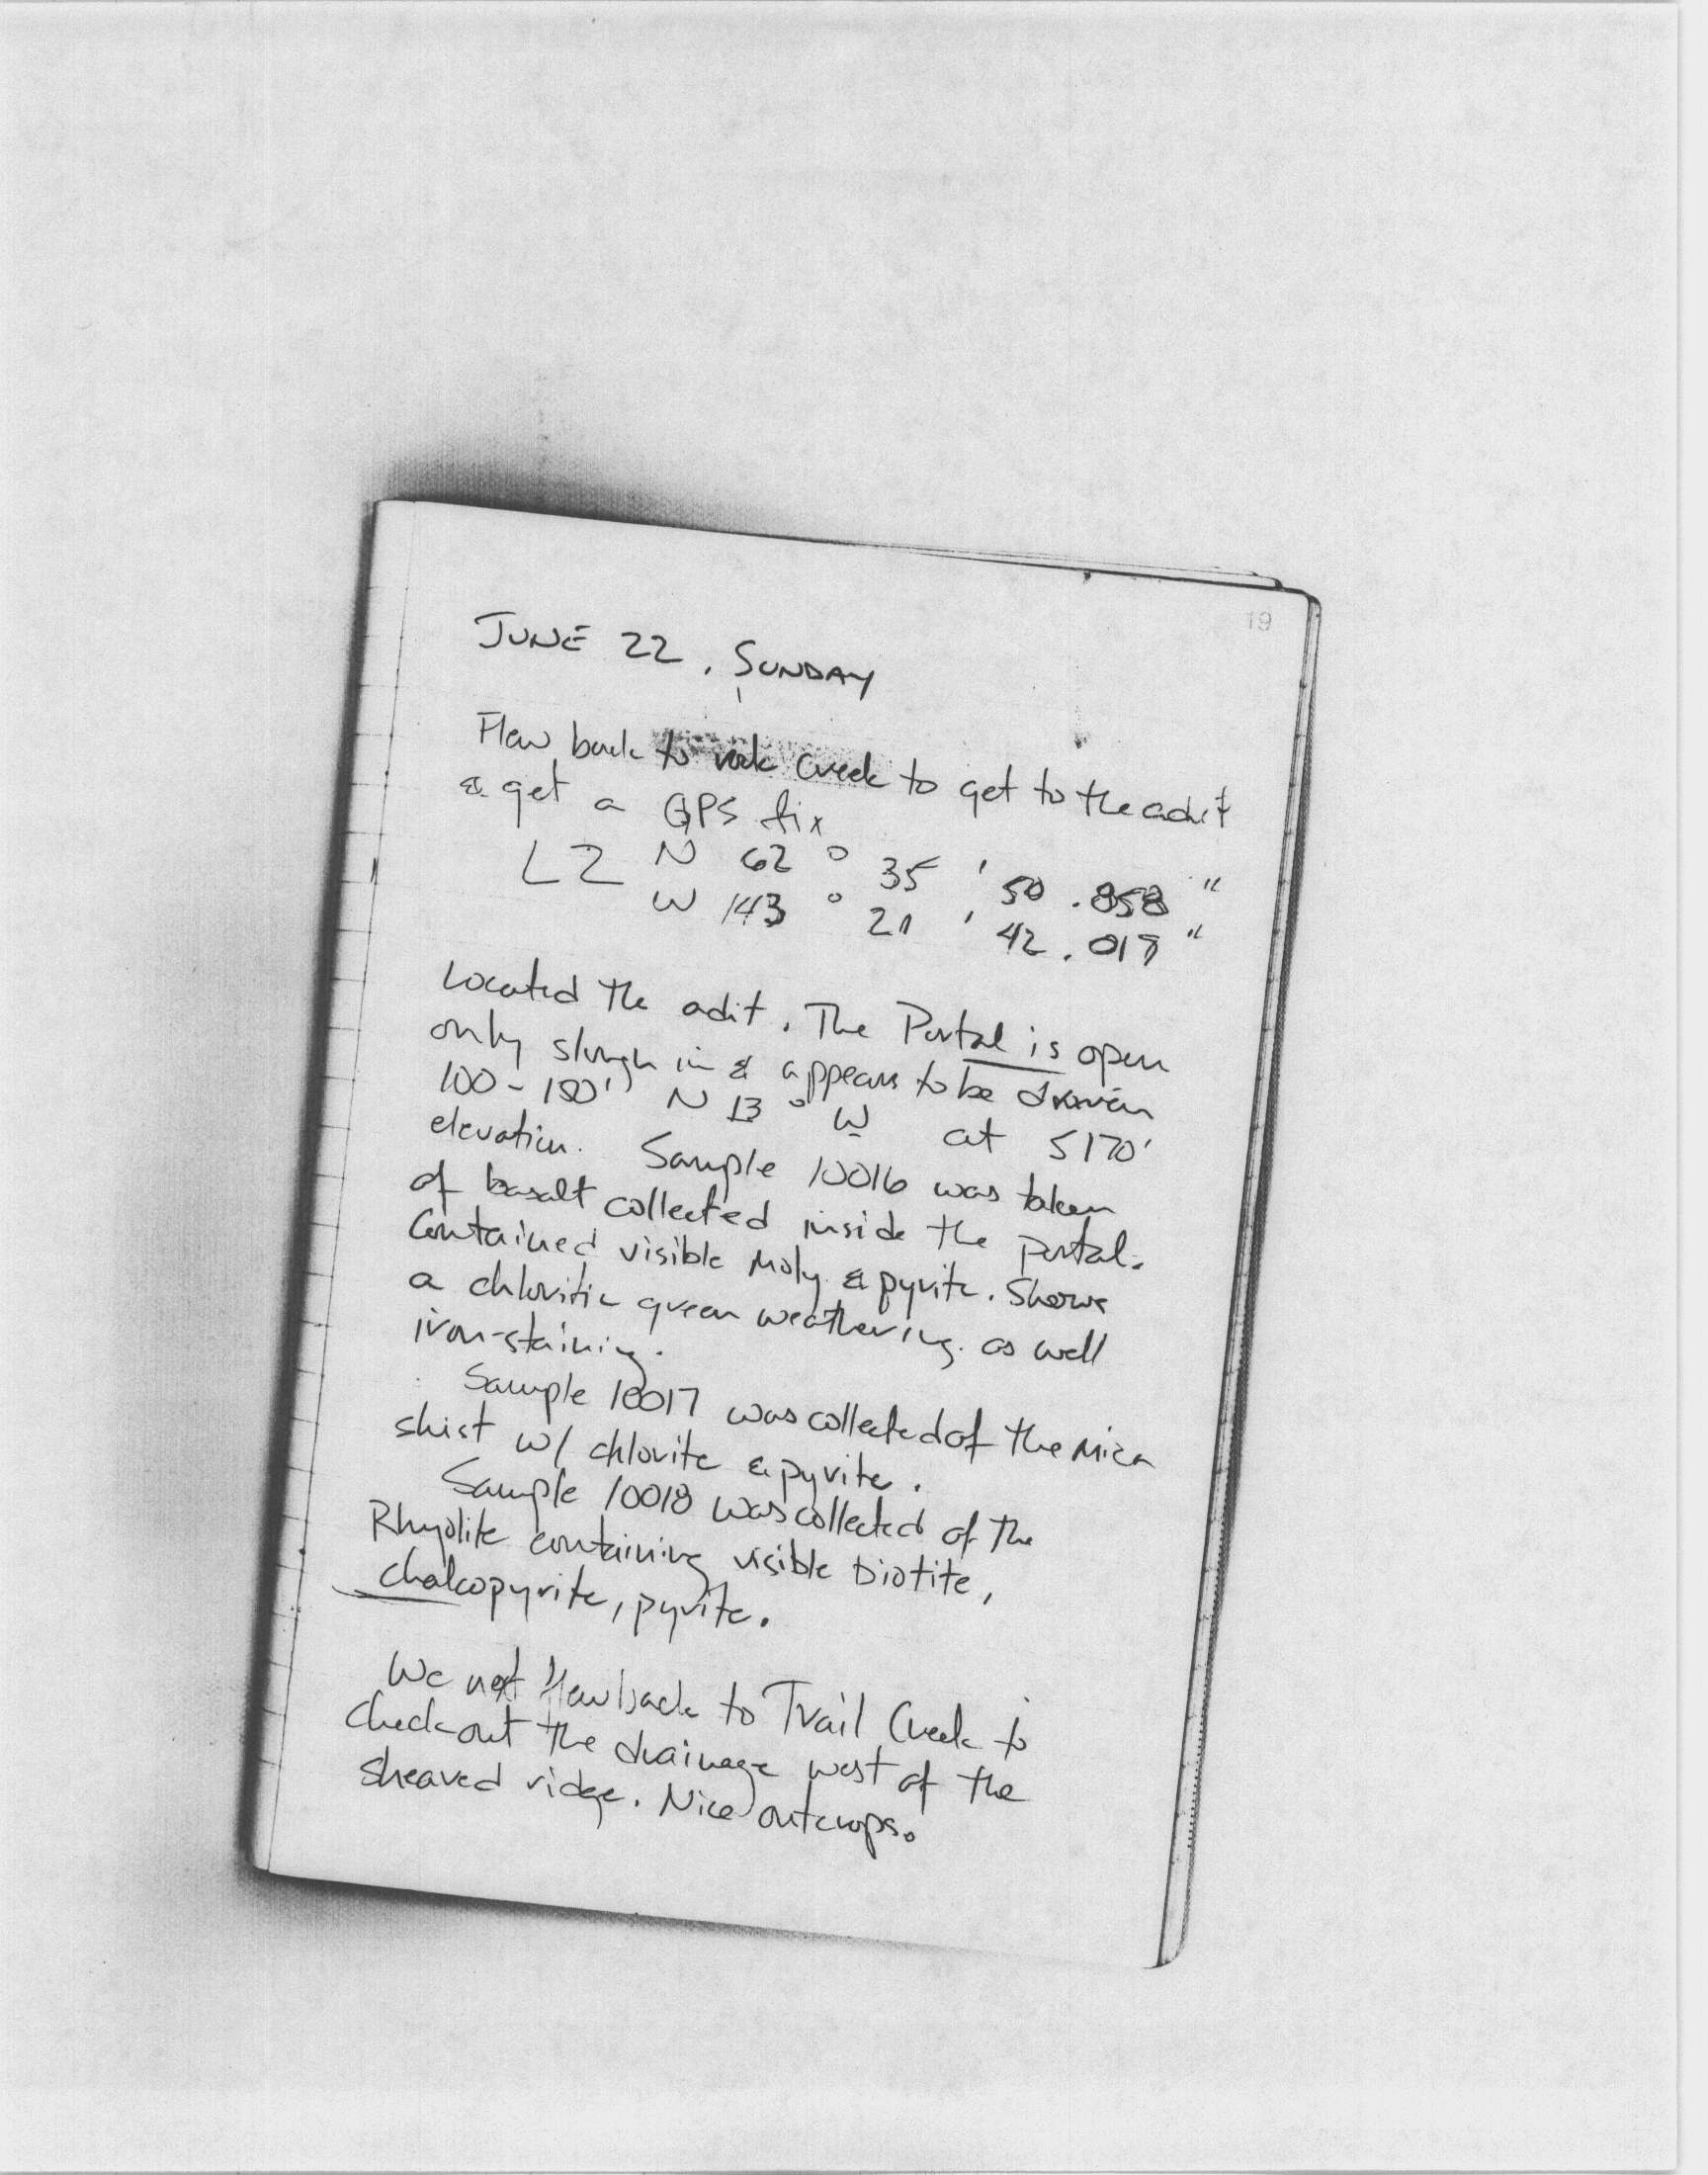 19
JUNE 22, SUNDAY
Flew back to rock creek to get to the adit
& get a GPS fix
LZ N 62 ° 35 ' 50 .858 "
W 143 ° 21 ' 42 .019 "
Located the adit. The Portal is open
only slough in & appears to be driven
100 - 150' N 13 ° W at 5170'
elevation. Sample 10016 was taken
of basalt collected inside the portal.
Contained visible Moly & pyrite. Shows
a chloritic green weathering as well
iron-staining.
Sample 10017 was collected of the Mica
shist w/ chlorite & pyrite.
Sample 10018 was collected of the
Rhyolite containing visible biotite,
chalcopyrite, pyrite.
We next flew back to Trail Creek to
check out the drainage west of the
sheared ridge. Nice outcrops.